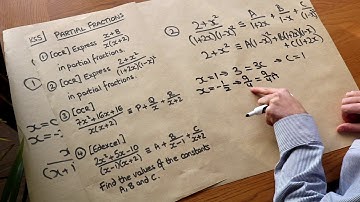 KS5 PARTIAL FRACTIONS
① [OCR] Express x+8 / x(x+2)
in partial fractions.
② [OCR] Express 2+x² / (1+2x)(1-x)²
in partial fractions.
③ [OCR]
7x²+16x+16 / x(x+2) ≡ P + Q/x + R/(x+2)
④ [Edexcel]
2x²+5x-10 / (x-1)(x+2) ≡ A + B/(x-1) + C/(x+2)
Find the values of the constants
A, B and C.
② 2+x² / (1+2x)(1-x)² ≡ A/(1+2x) + B/(1-x) + C
2+x² ≡ A(1-x)² + B(1+2x)(
+C(1+2x)
x=1 → 3 = 3C → C=1
x=-½ → 9/4 = 9/4 A